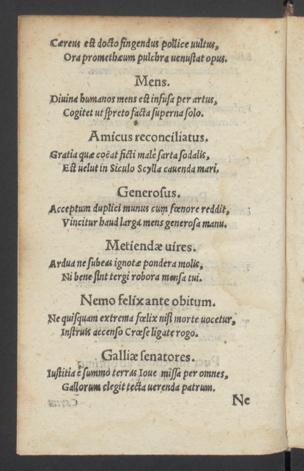 Cæreus est docto fingendus pollice uultus,
Ora promethæum pulchra uenustat opus.
Mens.
Diuina humanos mens est infusa per artus,
Cogitet ut spreto facta superna solo.
Amicus reconciliatus.
Gratia quæ coëat ficti malè sarta sodalis,
Est uelut in Siculo Scylla cauenda mari.
Generosus.
Acceptum duplici munus cum fœnore reddit,
Vincitur haud larga mens generosa manu.
Metiendæ uires.
Ardua ne subeas ignotæ pondera molis,
Ni bene sint tergi robora mensa tui.
Nemo felix ante obitum.
Ne quisquam extrema fœlix nisi morte uocetur,
Instruis accenso Crœse ligate rogo.
Galliæ senatores.
Iustitia è summo terras Ioue missa per omnes,
Gallorum elegit tecta uerenda patrum.
Ne